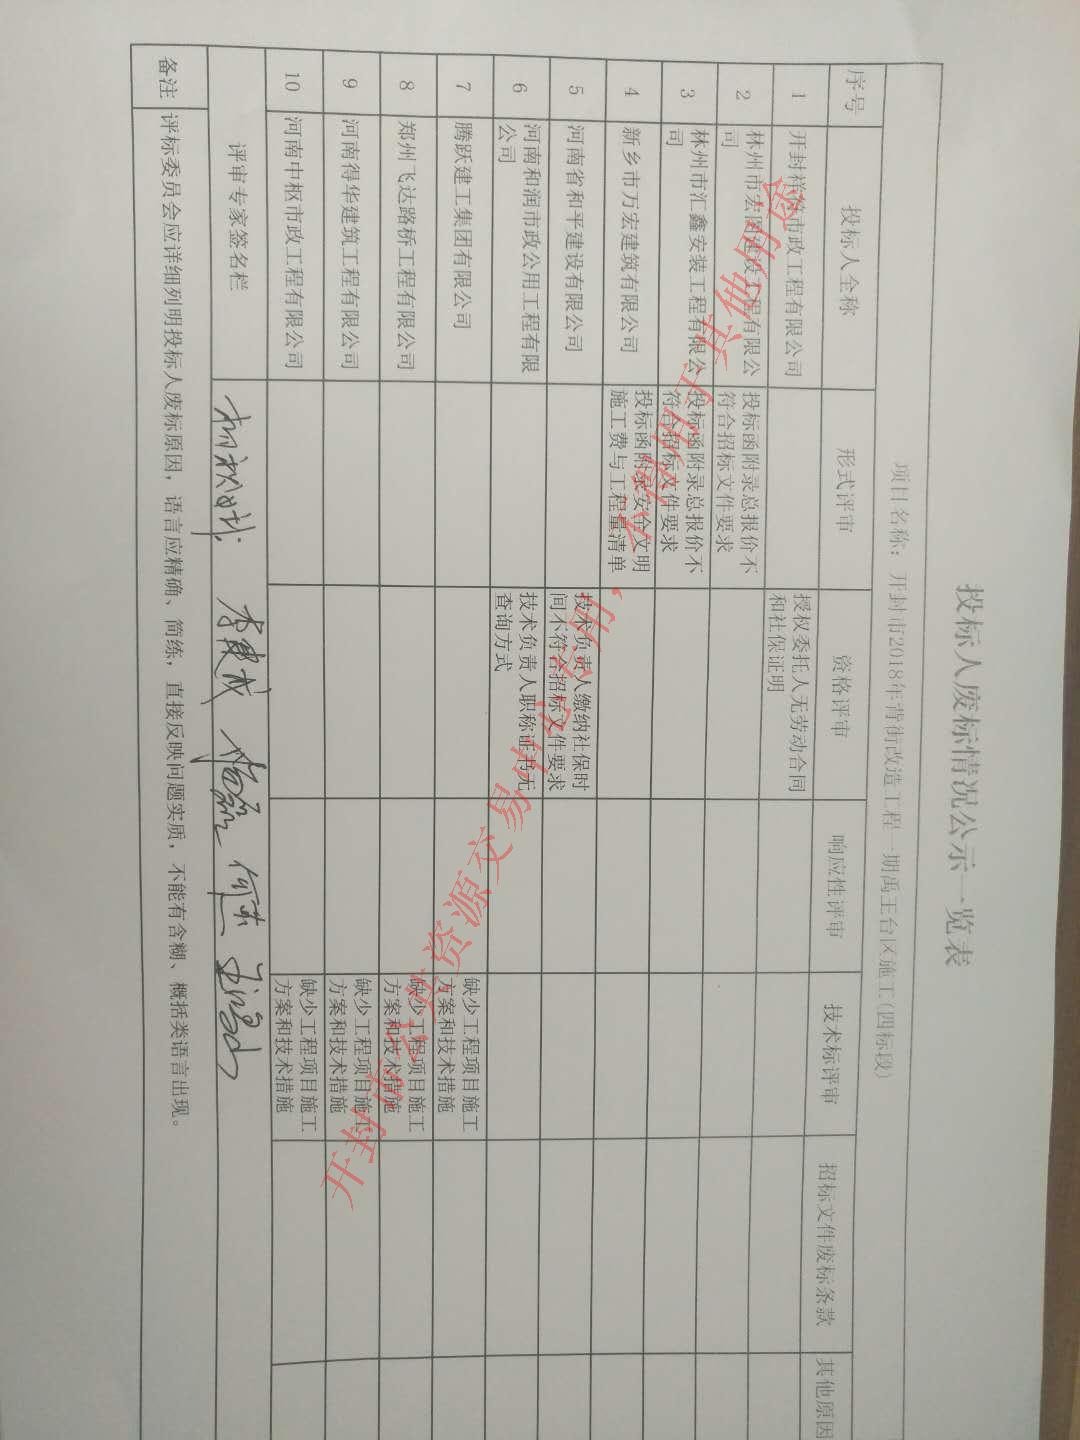 投标人废标情况公示一览表
项目名称：开封市2018年背街改造工程一期禹王台区施工(四标段)
序号 投标人全称 形式评审 资格评审 响应性评审 技术标评审 招标文件废标条款 其他原因
1 开封祥符市政工程有限公司 授权委托人无劳动合同
和社保证明
2 林州市宏图建设工程有限公
司 投标函附录总报价不
符合招标文件要求
3 林州市汇鑫安装工程有限公
司 投标函附录总报价不
符合招标文件要求
4 新乡市万宏建筑有限公司 投标函附录安全文明
施工费与工程量清单
5 河南省和平建设有限公司 技术负责人缴纳社保时
间不符合招标文件要求
6 河南和润市政公用工程有限
公司 技术负责人职称证书无
查询方式
7 腾跃建工集团有限公司 缺少工程项目施工
方案和技术措施
8 郑州飞达路桥工程有限公司 缺少工程项目施工
方案和技术措施
9 河南得华建筑工程有限公司 缺少工程项目施工
方案和技术措施
10 河南中枢市政工程有限公司 缺少工程项目施工
方案和技术措施
评审专家签名栏
备注 评标委员会应详细列明投标人废标原因，语言应精确、简练，直接反映问题实质，不能有含糊、概括类语言出现。
开封市公共资源交易中心专用，不得用于其他用途